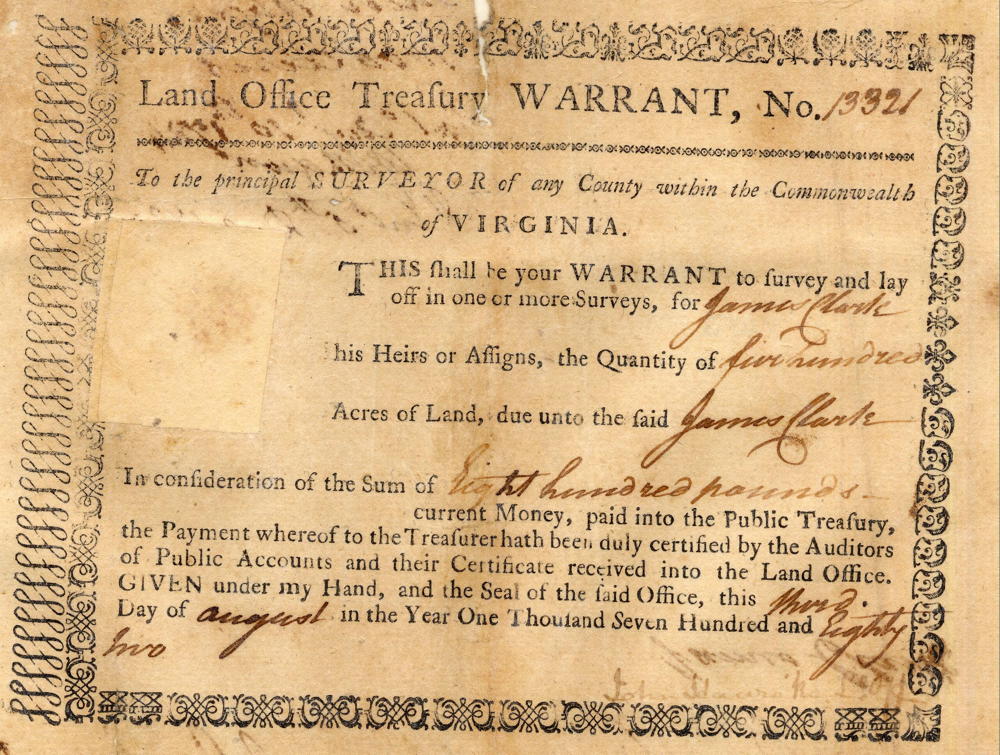 Land Office Treaſury WARRANT, No. 13321
To the principal SURVEYOR of any County within the Commonwealth
of VIRGINIA.
THIS ſhall be your WARRANT to ſurvey and lay
off in one or more Surveys, for James Clark
his Heirs or Aſſigns, the Quantity of five hundred
Acres of Land, due unto the ſaid James Clark
In conſideration of the Sum of Eight hundred pounds
current Money, paid into the Public Treaſury,
the Payment whereof to the Treaſurer hath been duly certified by the Auditors
of Public Accounts and their Certificate received into the Land Office.
GIVEN under my Hand, and the Seal of the ſaid Office, this third.
Day of august in the Year One Thouſand Seven Hundred and Eighty
two